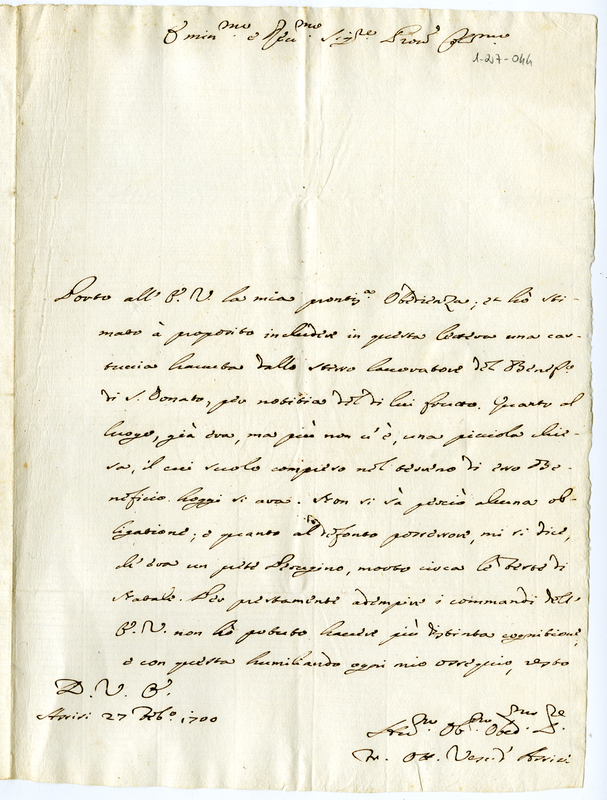 Emin.mo e Rev.mo Sig.re Prone
1-27-044
Porto all' E. V. la mia pronti.a Obedienza; et hò sti-
mato à proposito includere in questa lettera una car-
tuccia havuta dallo stesso lavoratore del Benef.o
di S. Donato, per notitia del di lui frutto. Quanto al
luogo, già era, ma più non ci è, una piccola chie-
sa, il cui suolo compreso nel terreno di esso Be-
neficio hoggi si ara. Non si sà perciò alcuna ob-
ligatione; e quanto al difonto possessore, mi si dice,
ch'era un prete Perugino, morto circa le feste di
Natale. Per prestamente adempire i commandi dell'
E. V. non hò potuto havere più distinta cognitione,
e con questa humiliando ogni mio ossequio, resto
D. V. E.
Assisi 27 Feb.o 1700
Hu.mo Ob.mo Obed. S.re
Ott. Vesc. d'Assisi